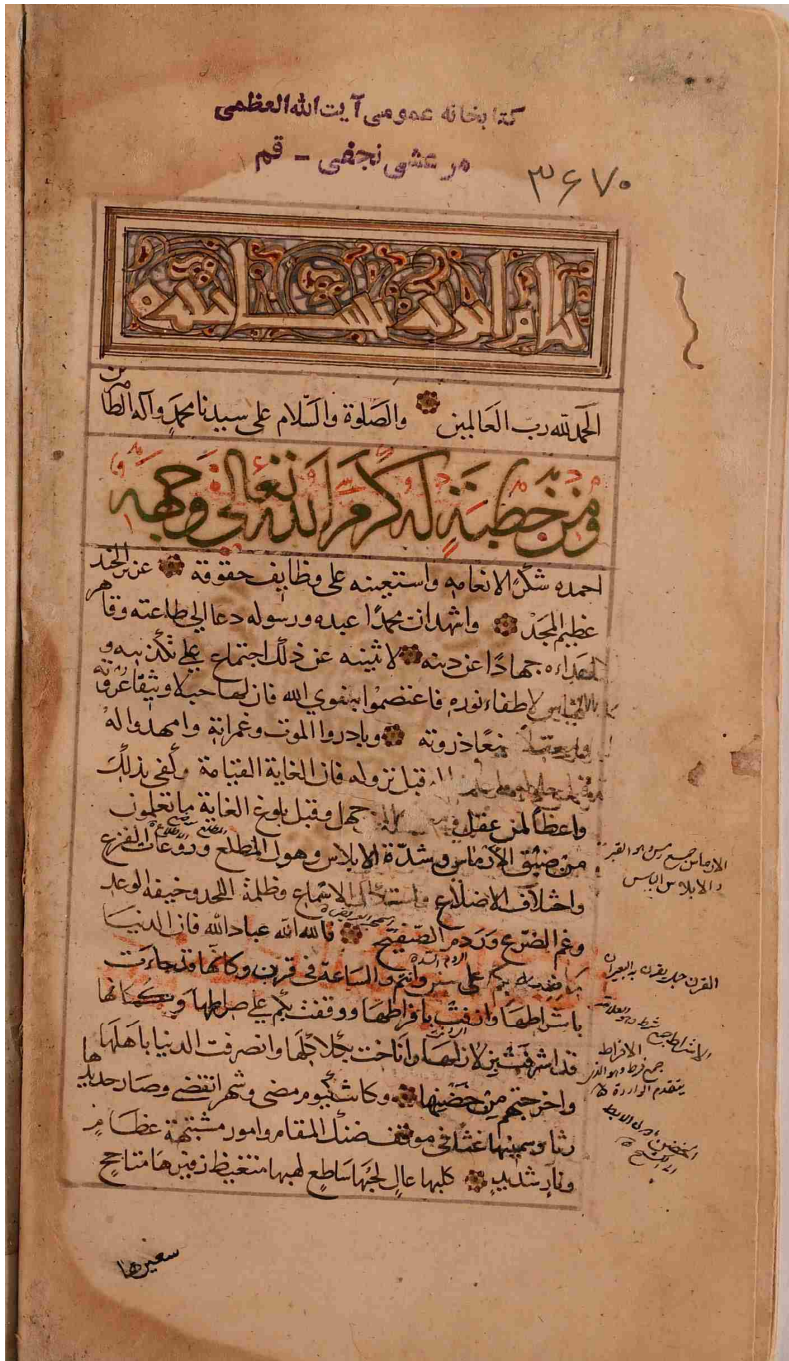 كتابخانه عمومی آیت الله العظمی
مرعشی نجفی - قم
۳۶۷۰
الحمد لله رب العالمين والصلوة والسلام على سيدنا محمد وآله الطاهرين
ومن خطبة له كرم الله تعالى وجهه
احمده شكرا لانعامه واستعينه على وظايف حقوقه عزيز الجند
عظيم المجد واشهد ان محمدا عبده ورسوله دعا الى طاعته وقاهر
اعداءه جهادا عن دينه لا يثنيه عن ذلك اجتماع على تكذيبه و
التماس لاطفاء نوره فاعتصموا بتقوى الله فان لها حبلا وثيقا عروته
ومعقلا منيعا ذروته وبادروا الموت وغمراته وامهدوا له
قبل نزوله فان الغاية القيامة وكفى بذلك
واعظا لمن عقل جهل وقبل بلوغ الغاية ما تعلمون
من ضيق الارماس وشدة الابلاس وهول المطلع وروعات الفزع
واختلاف الاضلاع واستكاك الاسماع وظلمة اللحد وخيفة الوعد
وغم الضريح وردم الصفيح فالله الله عباد الله فان الدنيا
ماضية بكم على سنن وانتم والساعة فى قرن وكانها قد جاءت
باشراطها وازفت بافراطها ووقفت بكم على صراطها وكانها
قد اشرفت بزلازلها واناخت بكلاكلها وانصرفت الدنيا باهلها
واخرجتهم من حضنها وكانت كيوم مضى وشهر انقضى وصار جديدها
رثا وسمينها غثا فى موقف ضنك المقام وامور مشتبهة عظام
ونار شديد كلبها عال لجبها ساطع لهبها متغيظ زفيرها متاجج
سعيرها
الارماس جمع رمس وهو القبر
والابلاس الياس
القرن حبل يقرن به البعيران
الافراط
جمع فرط وهو الذى
يتقدم الواردة